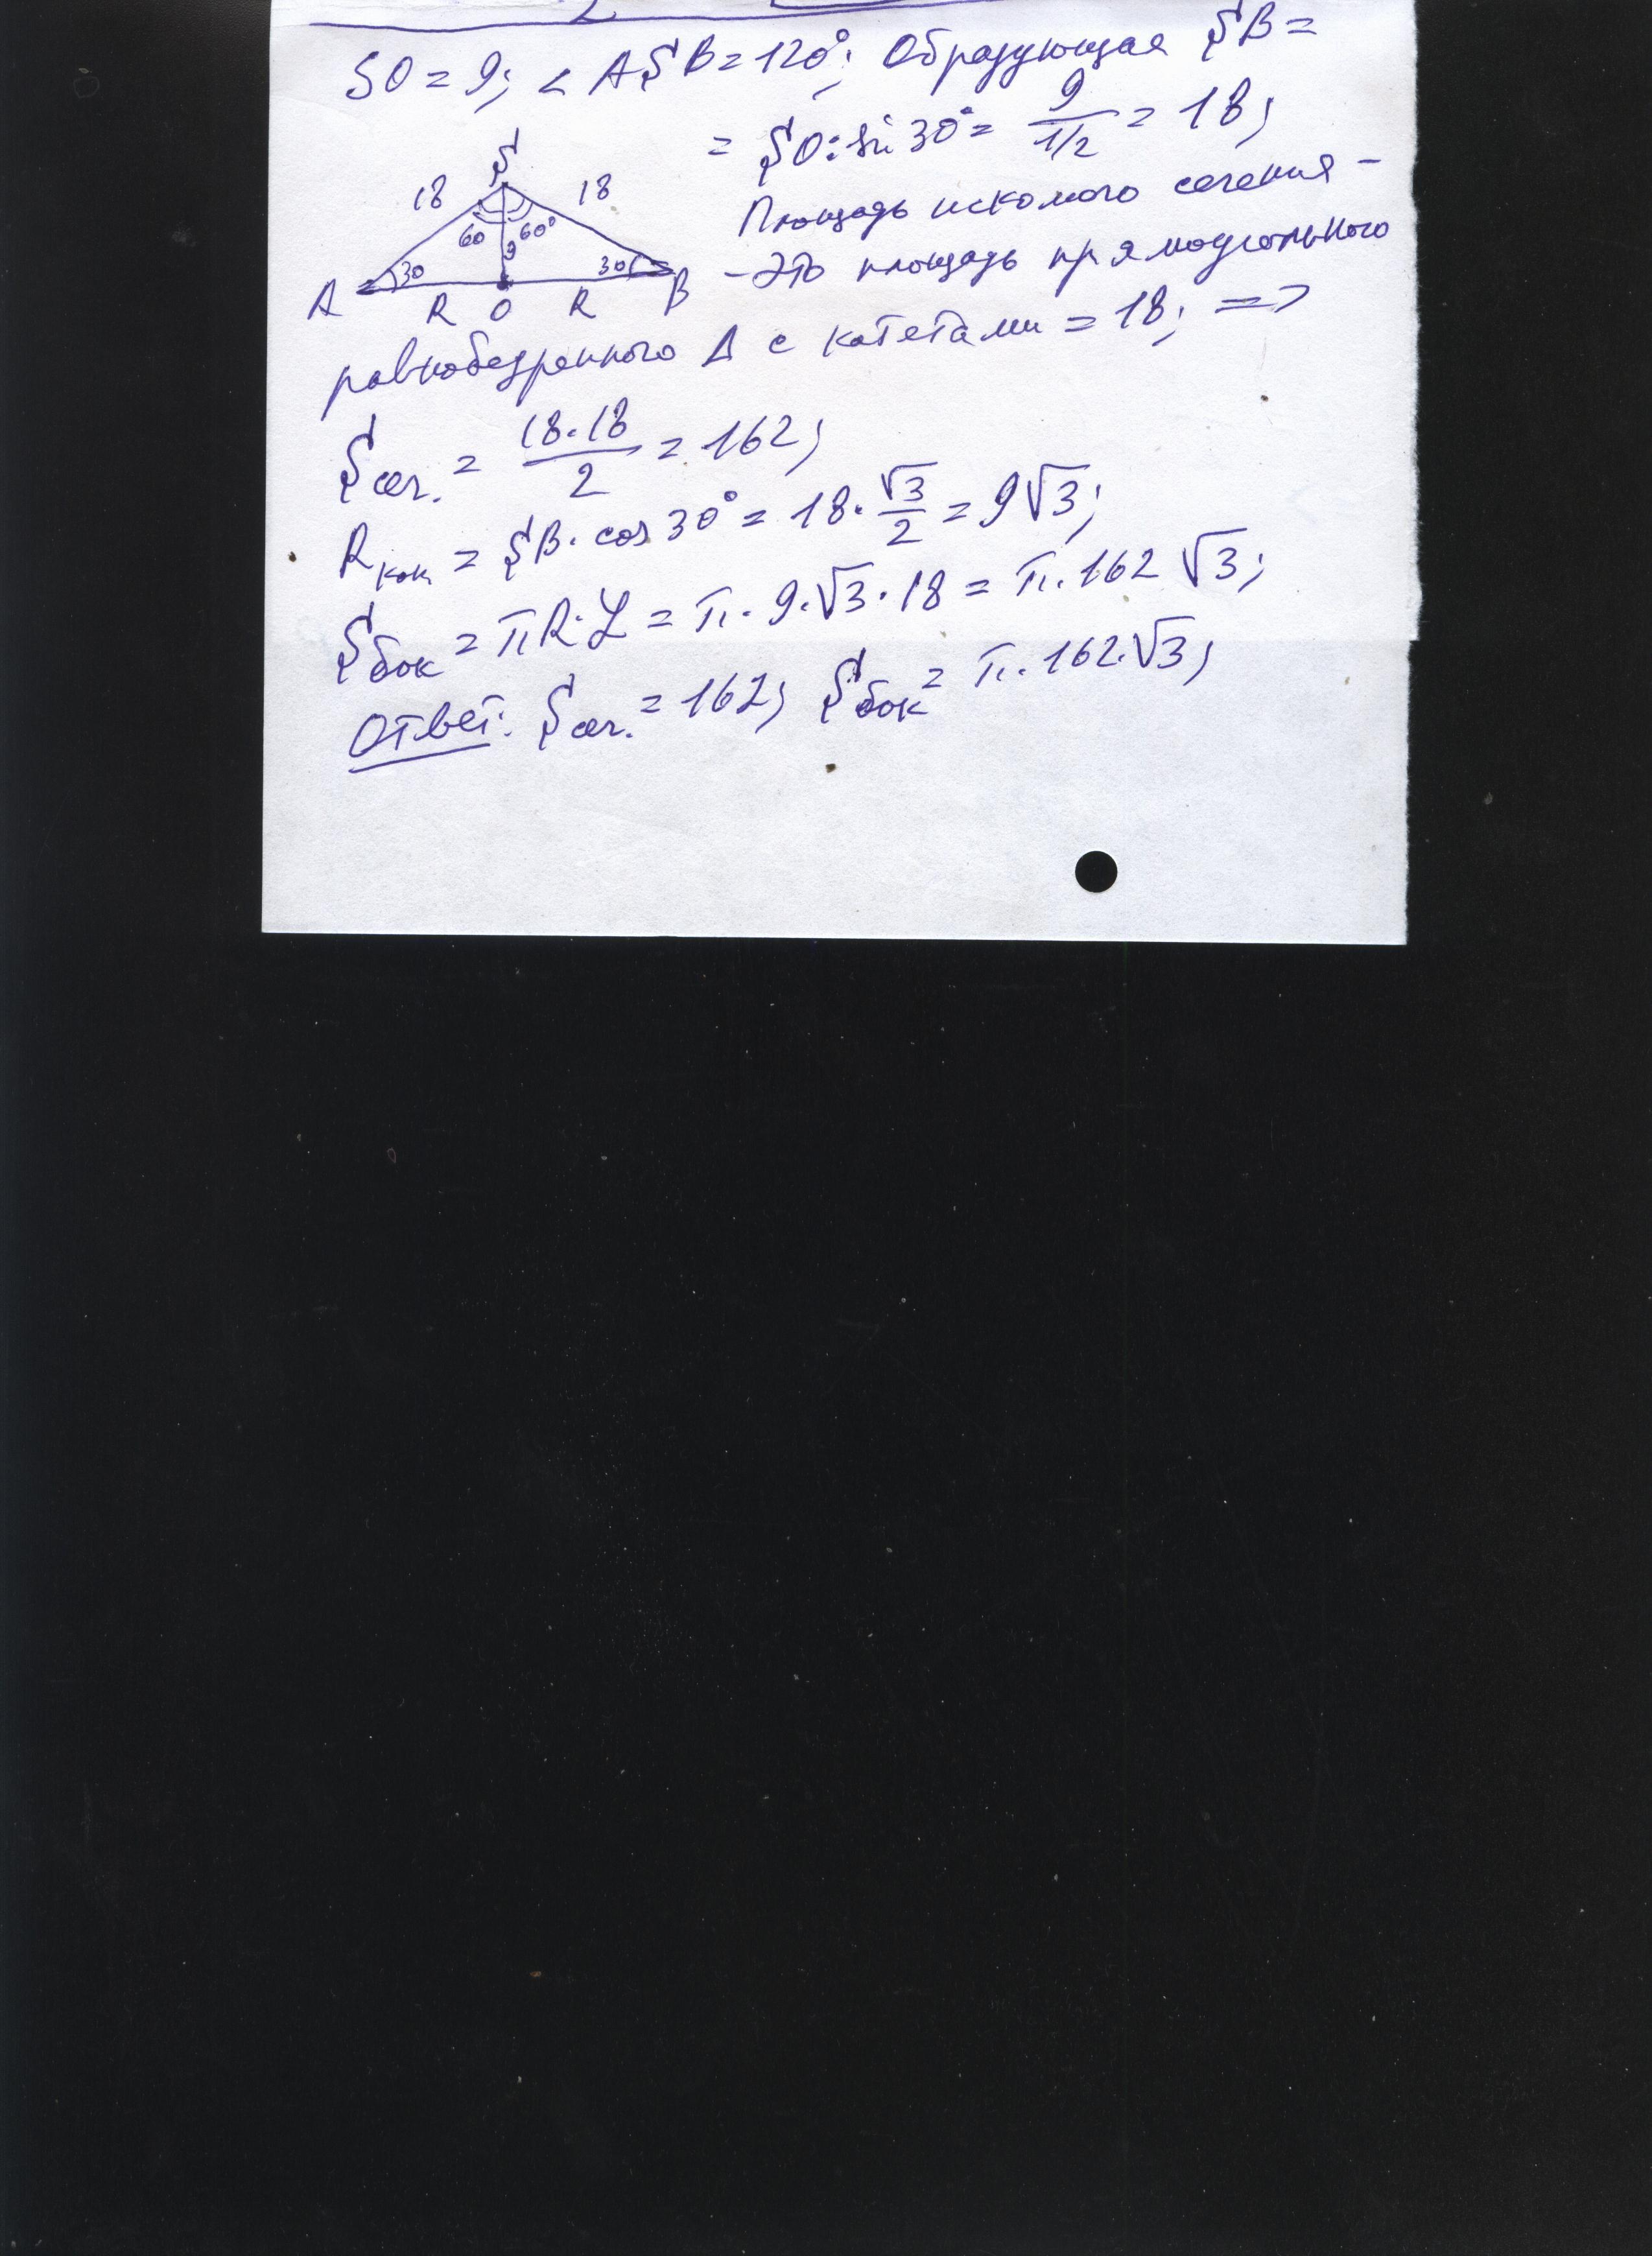 SO = 9; ∠ ASB = 120°; Образующая SB =
= SO : sin 30° = 9/(1/2) = 18;
S
18 18
60 60°
9
30 30
A R O R B
Площадь искомого сечения -
- Это площадь прямоугольного
равнобедренного Δ с катетами = 18; =>
Sсеч. = (18·18)/2 = 162;
Rкон = SB · cos 30° = 18 · √3/2 = 9√3;
Sбок = πR·L = π · 9·√3 · 18 = π · 162 √3;
Ответ: Sсеч. = 162; Sбок = π · 162·√3;